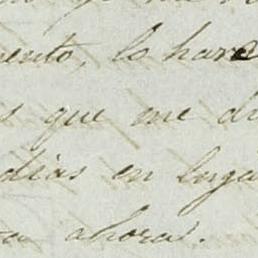 ento, lo hare
s que me di
dias en luga
a ahora.